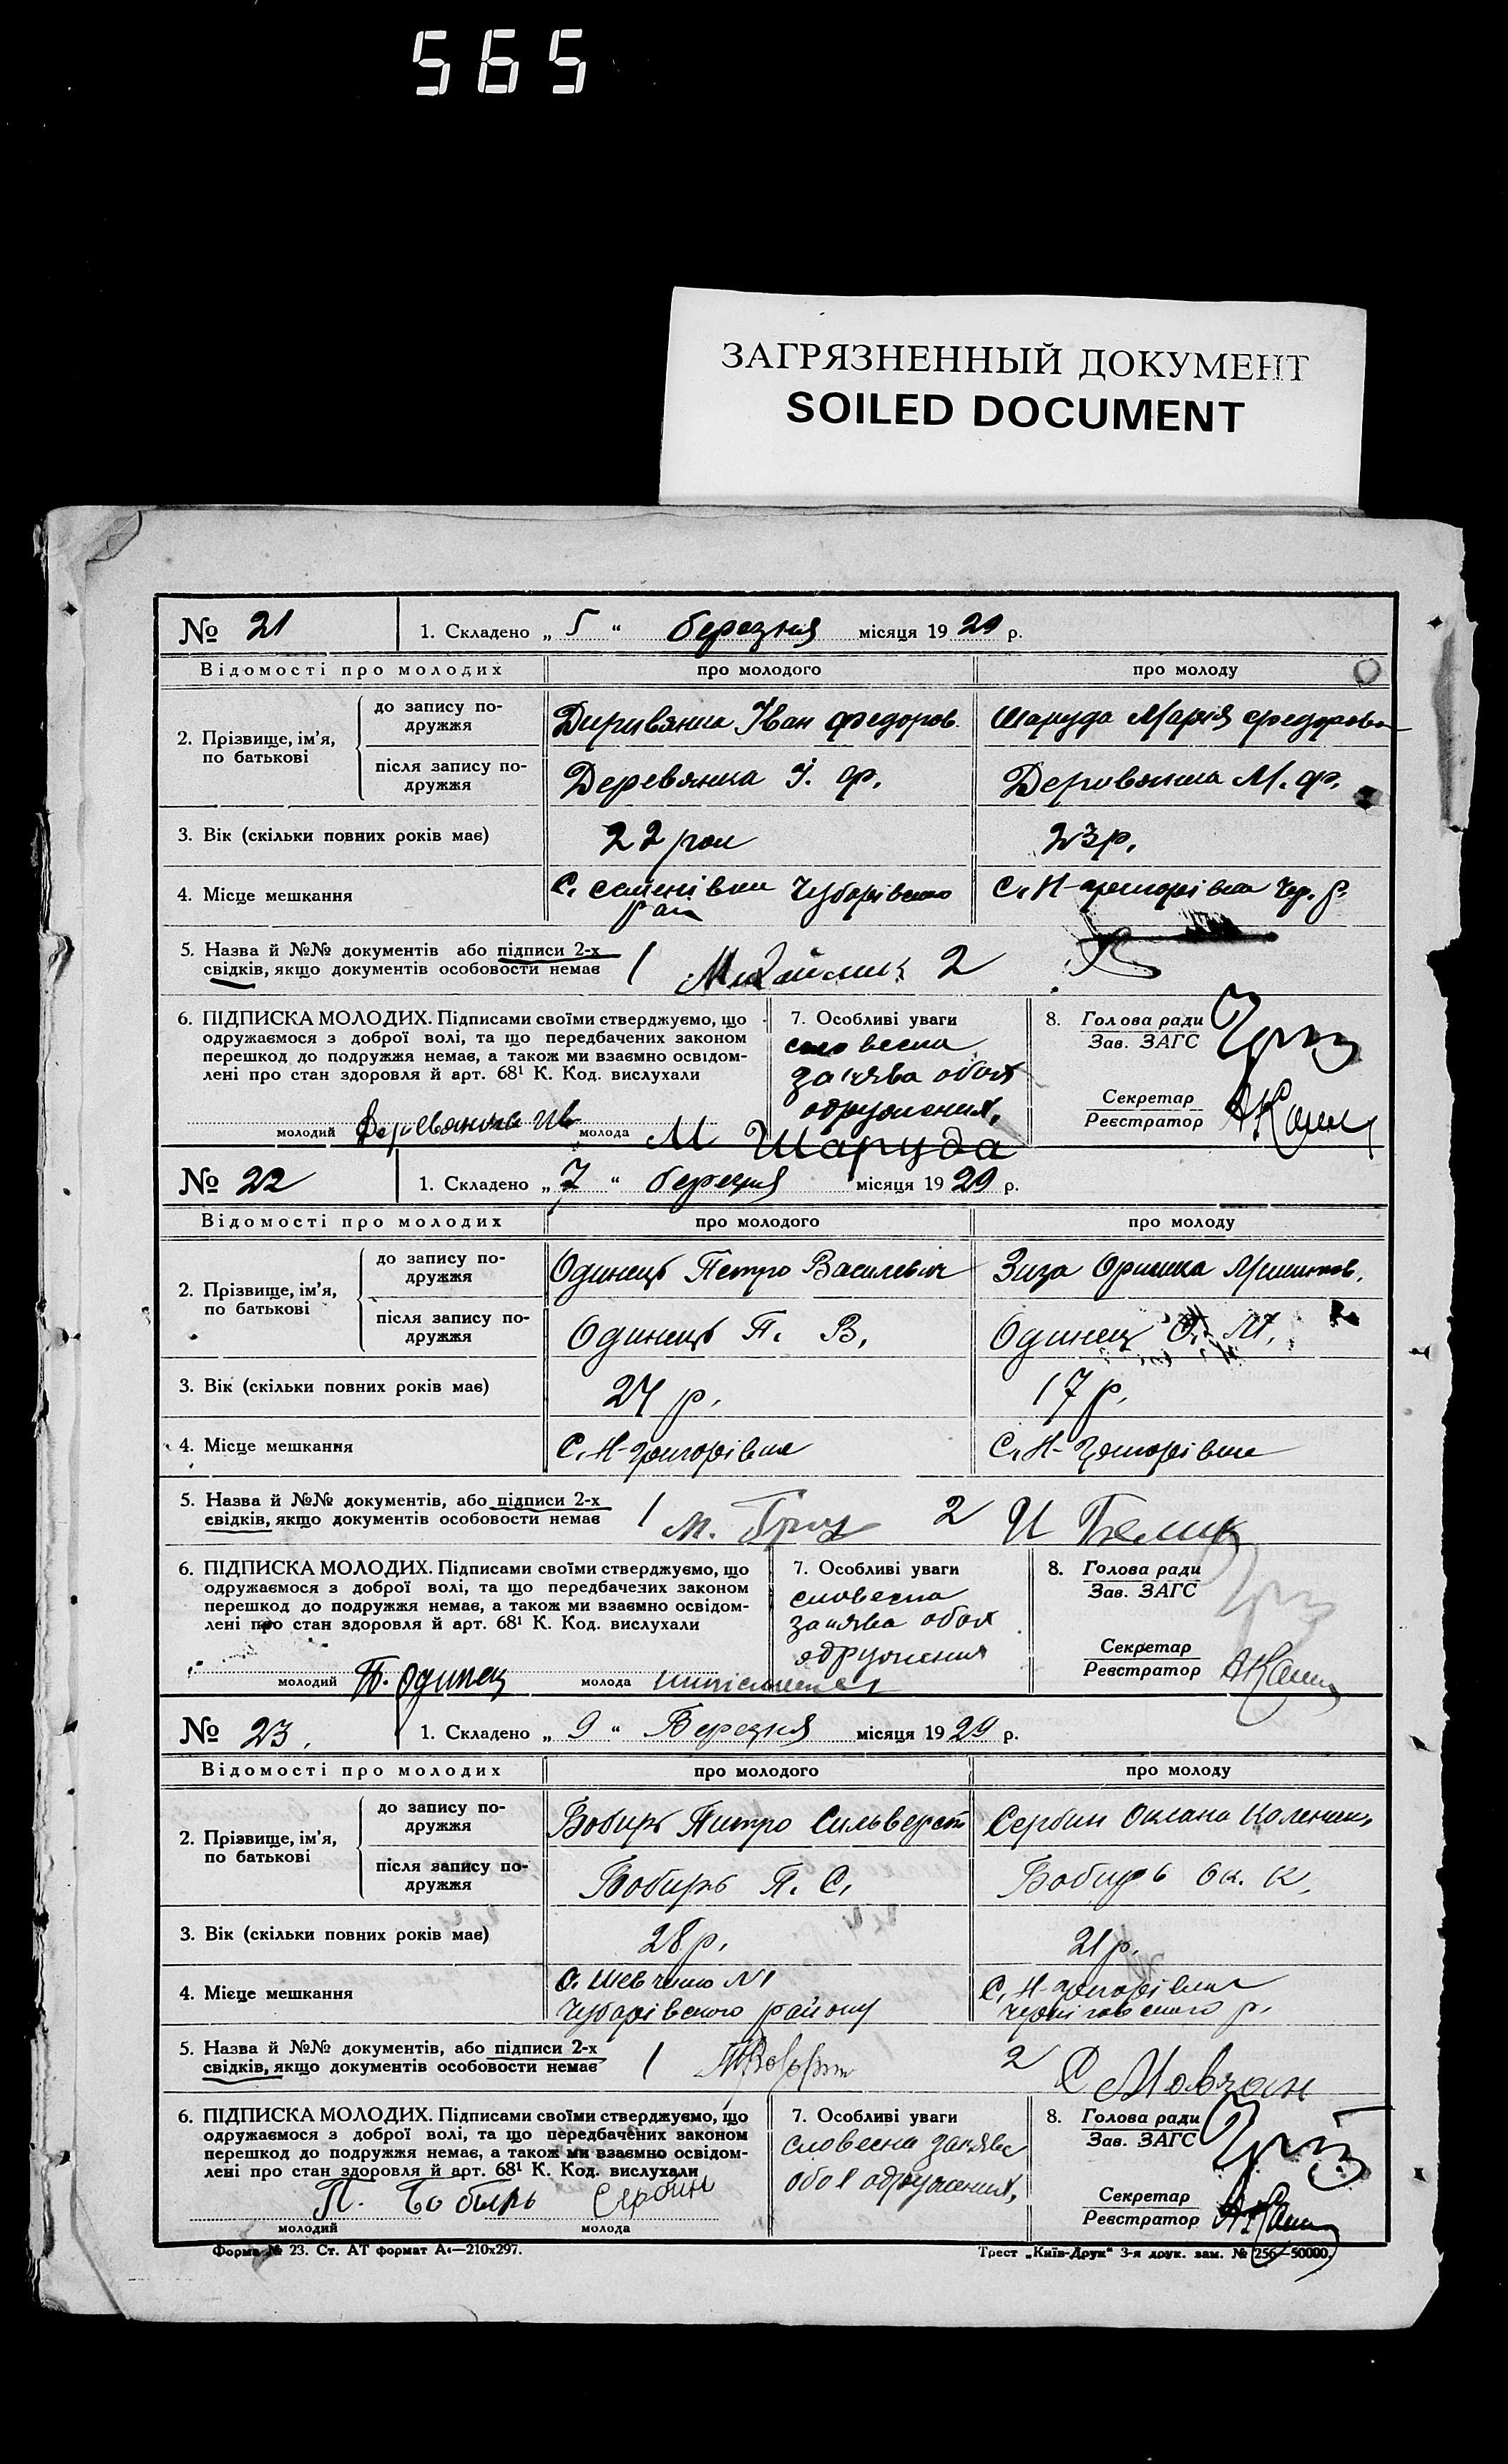 565
ЗАГРЯЗНЕННЫЙ ДОКУМЕНТ
SOILED DOCUMENT
№ 21
1. Складено „ 5 “ березня місяця 1929 р.
Відомості про молодих
про молодого
про молоду
2. Прізвище, ім’я,
по батькові
до запису по-
дружжя
Іван Федоров.
Шаруда Марія Федоровна
після запису по-
дружжя
Деревянка І. Ф.
М. Ф.
3. Вік (скільки повних років має)
22 рок
23 р.
4. Місце мешкання
С. Семенівка Чубарівського
рай
С. Н-Григорівка
5. Назва й №№ документів або підписи 2-х
свідків, якщо документів особовости немає
1
2
6. ПІДПИСКА МОЛОДИХ. Підписами своїми стверджуємо, що
одружаємося з доброї волі, та що передбачених законом
перешкод до подружжя немає, а також ми взаємно освідом-
лені про стан здоровля й арт. 68¹ К. Код. вислухали
молодий
молода М Шаруда
7. Особливі уваги
словесна
заява обох
одруження,
8. Голова ради
Зав. ЗАГС
Секретар
Реєстратор
№ 22
1. Складено „ 7 “ березня місяця 1929 р.
Відомості про молодих
про молодого
про молоду
2. Прізвище, ім’я,
по батькові
до запису по-
дружжя
Одинець Петро Василевич
після запису по-
дружжя
Одинець П. В.
Одинец О. М.
3. Вік (скільки повних років має)
24 р.
17 р.
4. Місце мешкання
С. Н-Григорівка
С. Н-Григорівка
5. Назва й №№ документів, або підписи 2-х
свідків, якщо документів особовости немає
1 М.
2 И Белик
6. ПІДПИСКА МОЛОДИХ. Підписами своїми стверджуємо, що
одружаємося з доброї волі, та що передбачених законом
перешкод до подружжя немає, а також ми взаємно освідом-
лені про стан здоровля й арт. 68¹ К. Код. вислухали
молодий П. Одинец
молода
7. Особливі уваги
словесна
заява обох
одруження
8. Голова ради
Зав. ЗАГС
Секретар
Реєстратор
№ 23.
1. Складено „ 9 “ Березня місяця 1929 р.
Відомості про молодих
про молодого
про молоду
2. Прізвище, ім’я,
по батькові
до запису по-
дружжя
Бобирь Питро Сильверст
Сербин Оксана
після запису по-
дружжя
Бобирь П. С.
Бобирь Ок. К.
3. Вік (скільки повних років має)
28 р.
21 р.
4. Місце мешкання
с. Шевченко N1
Чубарівського району
С. Н-Григорівка
Черніговського р.
5. Назва й №№ документів, або підписи 2-х
свідків, якщо документів особовости немає
1
2 С Мовчан
6. ПІДПИСКА МОЛОДИХ. Підписами своїми стверджуємо, що
одружаємося з доброї волі, та що передбачених законом
перешкод до подружжя немає, а також ми взаємно освідом-
лені про стан здоровля й арт. 68¹ К. Код. вислухали
П. Бобирь Сербин
молодий
молода
7. Особливі уваги
словесна заява
обох одруження,
8. Голова ради
Зав. ЗАГС
Секретар
Реєстратор
Форма № 23. Ст. АТ формат А₄—210х297.
Трест „Київ-Друк“ 3-я друк. зам. № 256—50000.